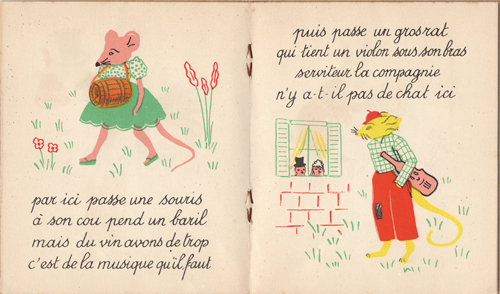 par ici passe une souris
à son cou pend un baril
mais du vin avons de trop
c'est de la musique qu'il faut
puis passe un gros rat
qui tient un violon sous son bras
serviteur la compagnie
n'y a-t-il pas de chat ici